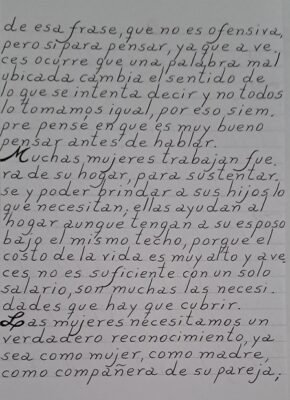 de esa frase, que no es ofensiva,
pero si para pensar, ya que a ve.
ces ocurre que una palabra mal
ubicada cambia el sentido de
lo que se intenta decir y no todos
lo tomamos igual, por eso siem.
pre pensé en que es muy bueno
pensar antes de hablar.
Muchas mujeres trabajan fue.
ra de su hogar, para sustentar.
se y poder brindar a sus hijos lo
que necesitan, ellas ayudan al
hogar aunque tengan a su esposo
bajo el mismo techo, porque el
costo de la vida es muy alto y ave.
ces no es suficiente con un solo
salario, son muchas las necesi.
dades que hay que cubrir.
Las mujeres necesitamos un
verdadero reconocimiento, ya
sea como mujer, como madre,
como compañera de su pareja,